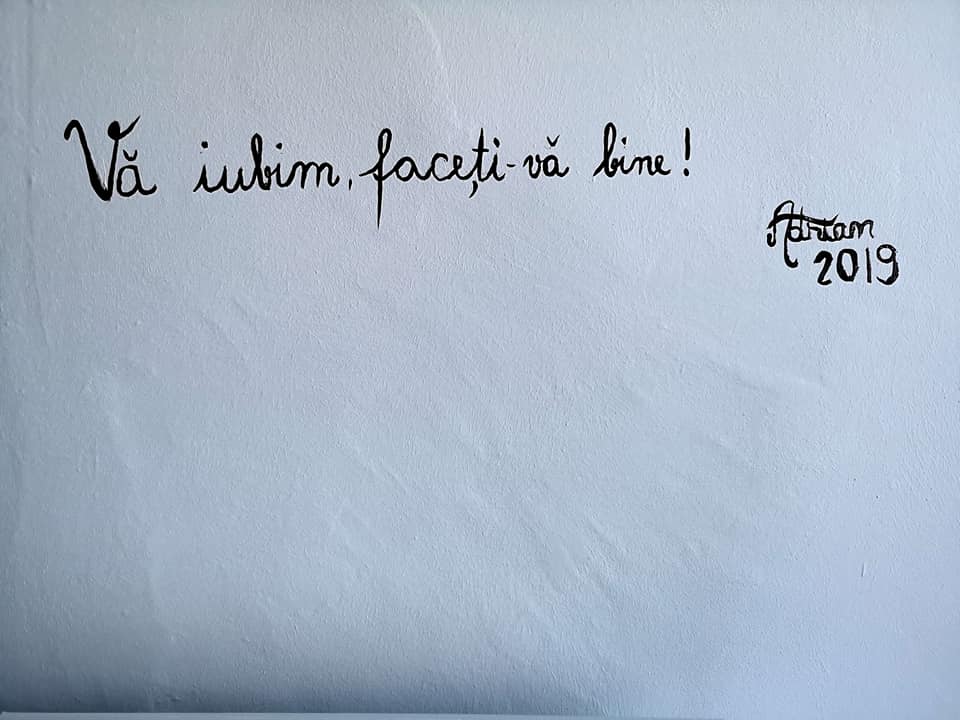 Vă iubim, faceți-vă bine!
Adrian
2019